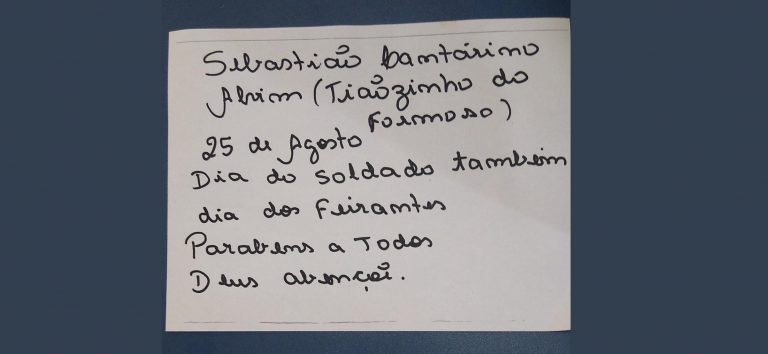 Sebastião Cantárino
Alvim (Tiãozinho do
Formoso)
25 de Agosto
Dia do Soldado também
dia dos Feirantes
Parabens a Todos
Deus abençoi.